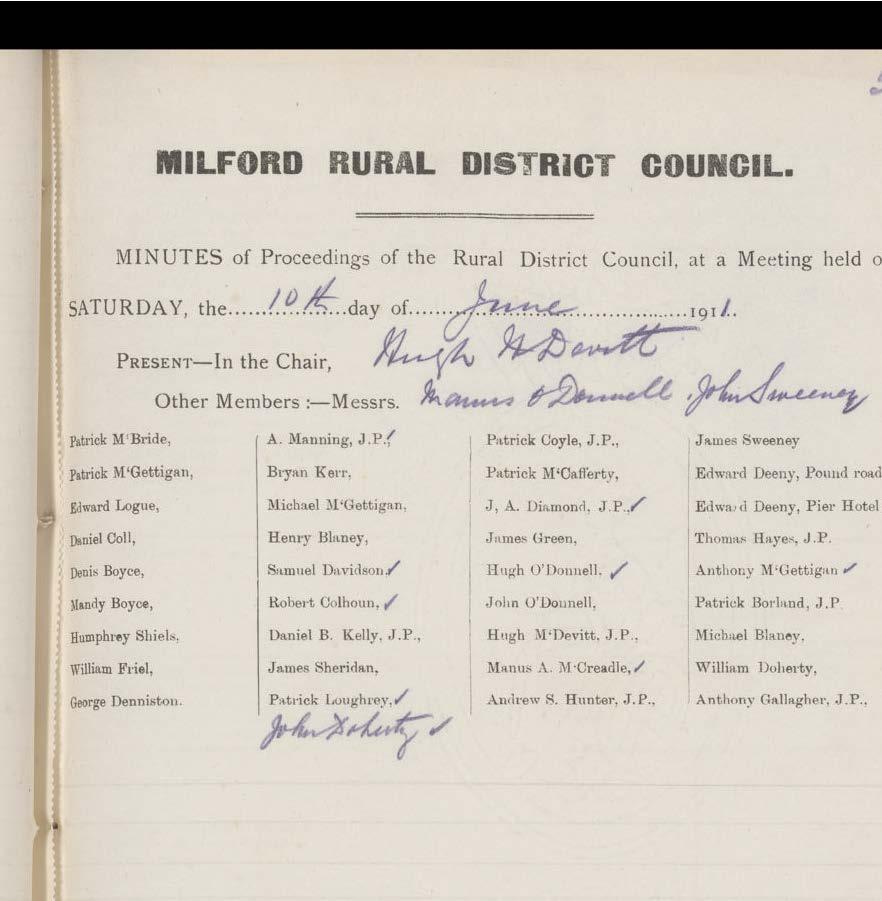 MILFORD RURAL DISTRICT COUNCIL.
MINUTES of Proceedings of the Rural District Council, at a Meeting held o
SATURDAY, the......10th...day of.......June.....................1911..
PRESENT—In the Chair, Hugh McDevitt
Other Members :—Messrs. Manus O'Donnell John Sweeney
Patrick M'Bride, A. Manning, J.P.,✓ Patrick Coyle, J.P., James Sweeney
Patrick M‘Gettigan, Bryan Kerr, Patrick M‘Cafferty, Edward Deeny, Pound road
Edward Logue, Michael M‘Gettigan, J, A. Diamond, J.P.,✓ Edward Deeny, Pier Hotel
Daniel Coll, Henry Blaney, James Green, Thomas Hayes, J.P.
Denis Boyce, Samuel Davidson,✓ Hugh O'Donnell, ✓ Anthony M‘Gettigan ✓
Mandy Boyce, Robert Colhoun, ✓ John O'Donnell, Patrick Borland, J.P.
Humphrey Shiels, Daniel B. Kelly, J.P., Hugh M‘Devitt, J.P., Michael Blaney,
William Friel, James Sheridan, Manus A. M‘Creadle,✓ William Doherty,
George Denniston. Patrick Loughrey,✓ Andrew S. Hunter, J.P., Anthony Gallagher, J.P.,
John Doherty ✓